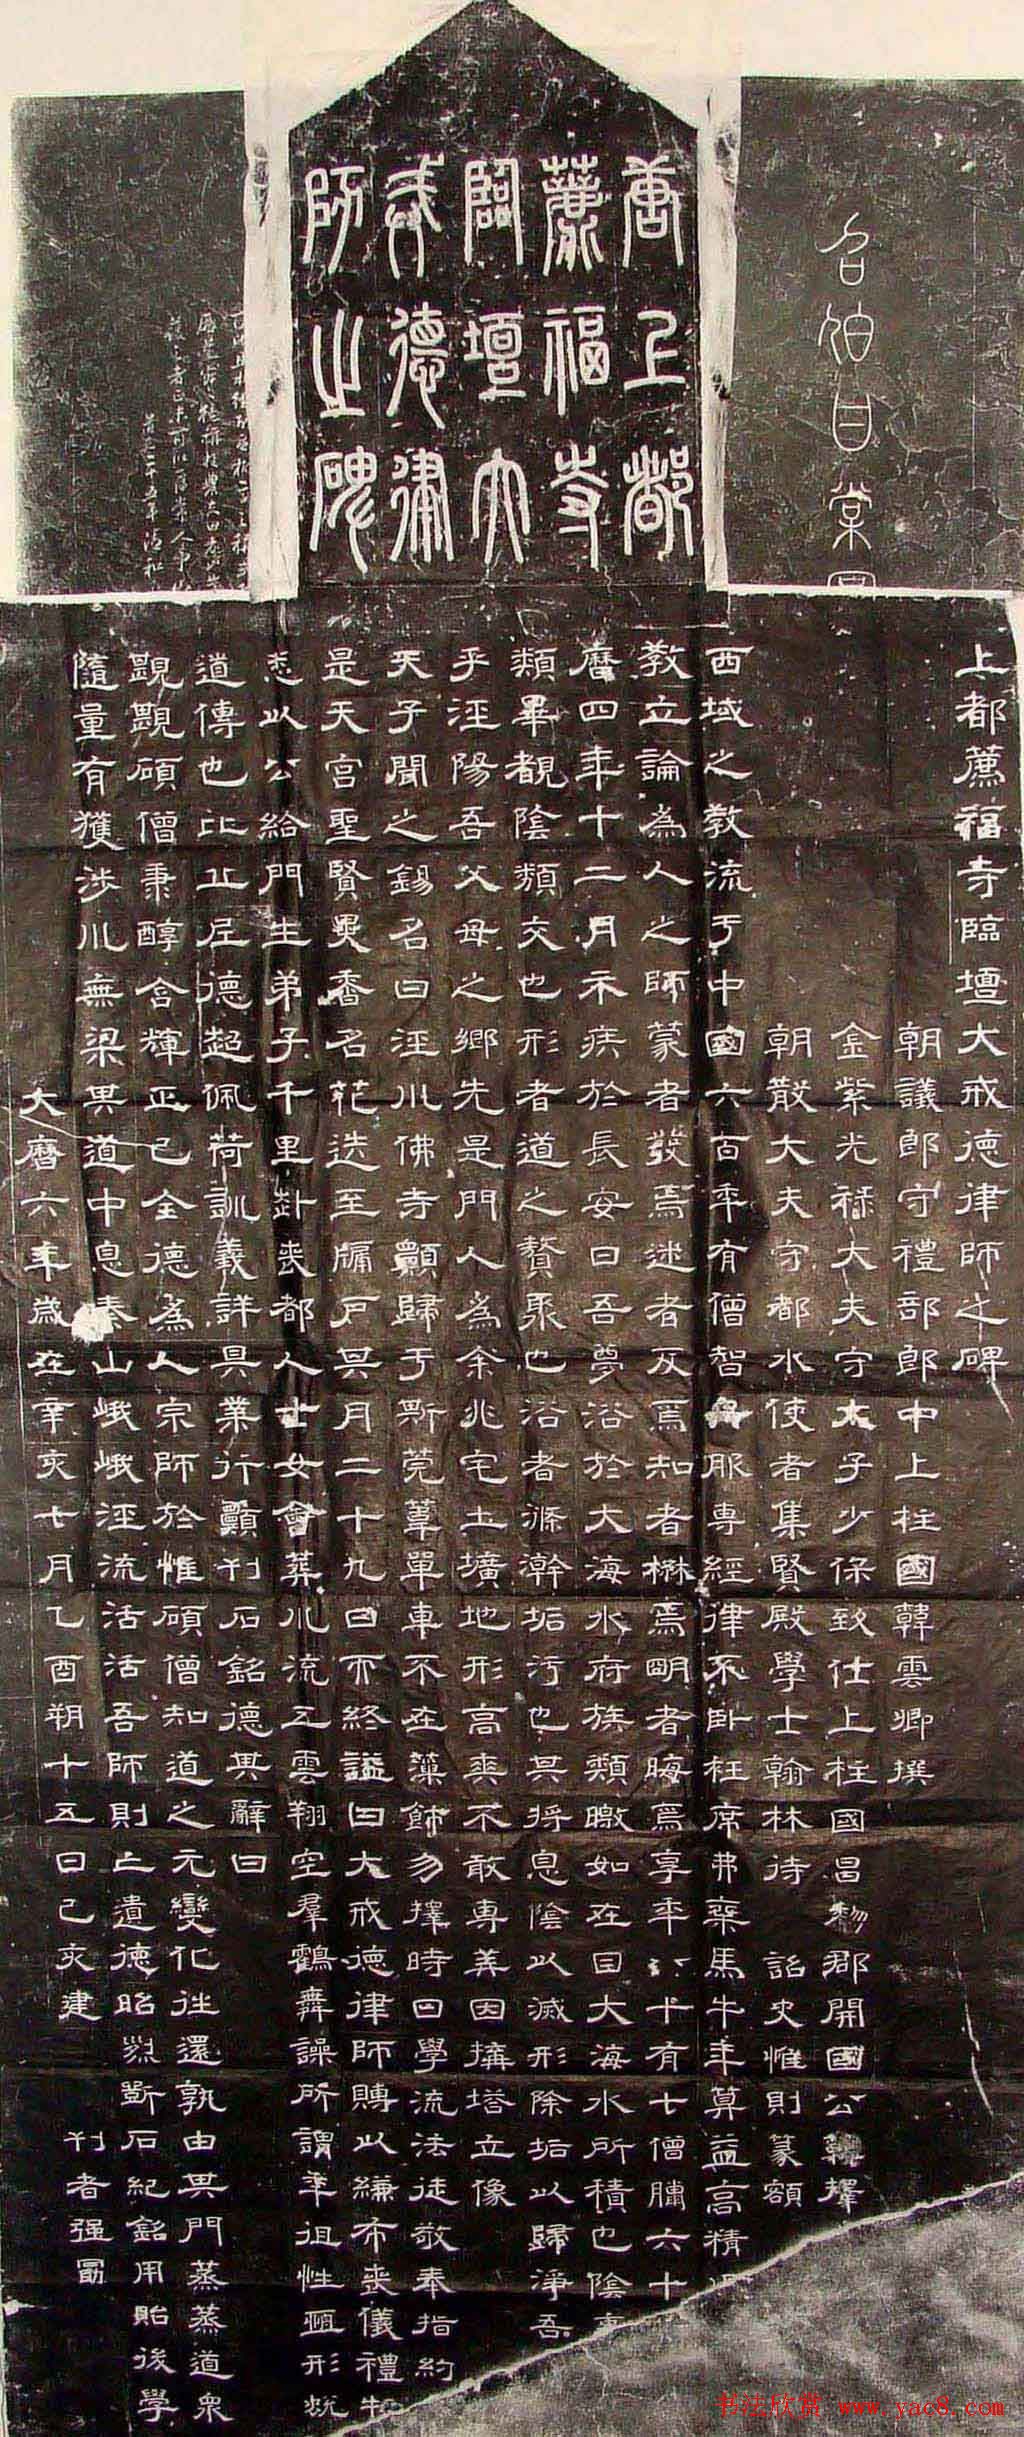 唐上都
薦福寺
臨壇大
戒德律
師之碑
召伯甘棠
上都薦福寺臨壇大戒德律師之碑
朝議郎守禮部郎中上柱國韓雲卿撰
金紫光祿大夫守太子少保致仕上柱國昌黎郡開國公韓擇
朝散大夫守都水使者集賢殿學士翰林待 詔史惟則篆額
西域之教流于中國六百年有僧智 服專經律不臥枉席弗乘馬牛年算益高精
教立論為人之師蒙者發焉迷者反焉知者楙焉明者晦焉享年八十有七僧臘六十
曆四年十二月示疾於長安曰吾夢浴於大海水府族類瞰如在目大海水所積也陰
類畢覩陰類交也形者道之贅聚也浴者滌澣垢汙也其將息陰以滅形除垢以歸淨吾
乎涇陽吾父母之鄉先是門人為余兆宅土壙地形高爽不敢專美因搆塔立像
天子聞之錫名曰涇川佛寺顧歸于斯莞葦單車不在藻飾勿擇時日學流法徒敬奉指約
是天宮聖賢異香名花迭至牖戶其月二十九日示終謚曰大戒德律師賻以縑布喪儀禮物
悉以公給門生弟子千里赴喪都人士女會葬川流五雲翔空羣鶴舞譟所謂年徂性亙形
道傳也比丘尼德超佩荷訓義詳具業行顧刊石銘德其辭曰
覬覬碩僧秉醇含輝正己全德為人宗師於惟碩僧知道之元變化往還孰由其門蒸蒸道眾
隨量有獲涉川無梁其道中息秦山峨峨涇流活活吾師則亡遺德昭烈斲石紀銘用貽後學
大曆六年歲在辛亥七月乙酉朔十五日己亥建 刊者強
书法欣赏 www.yac8.com